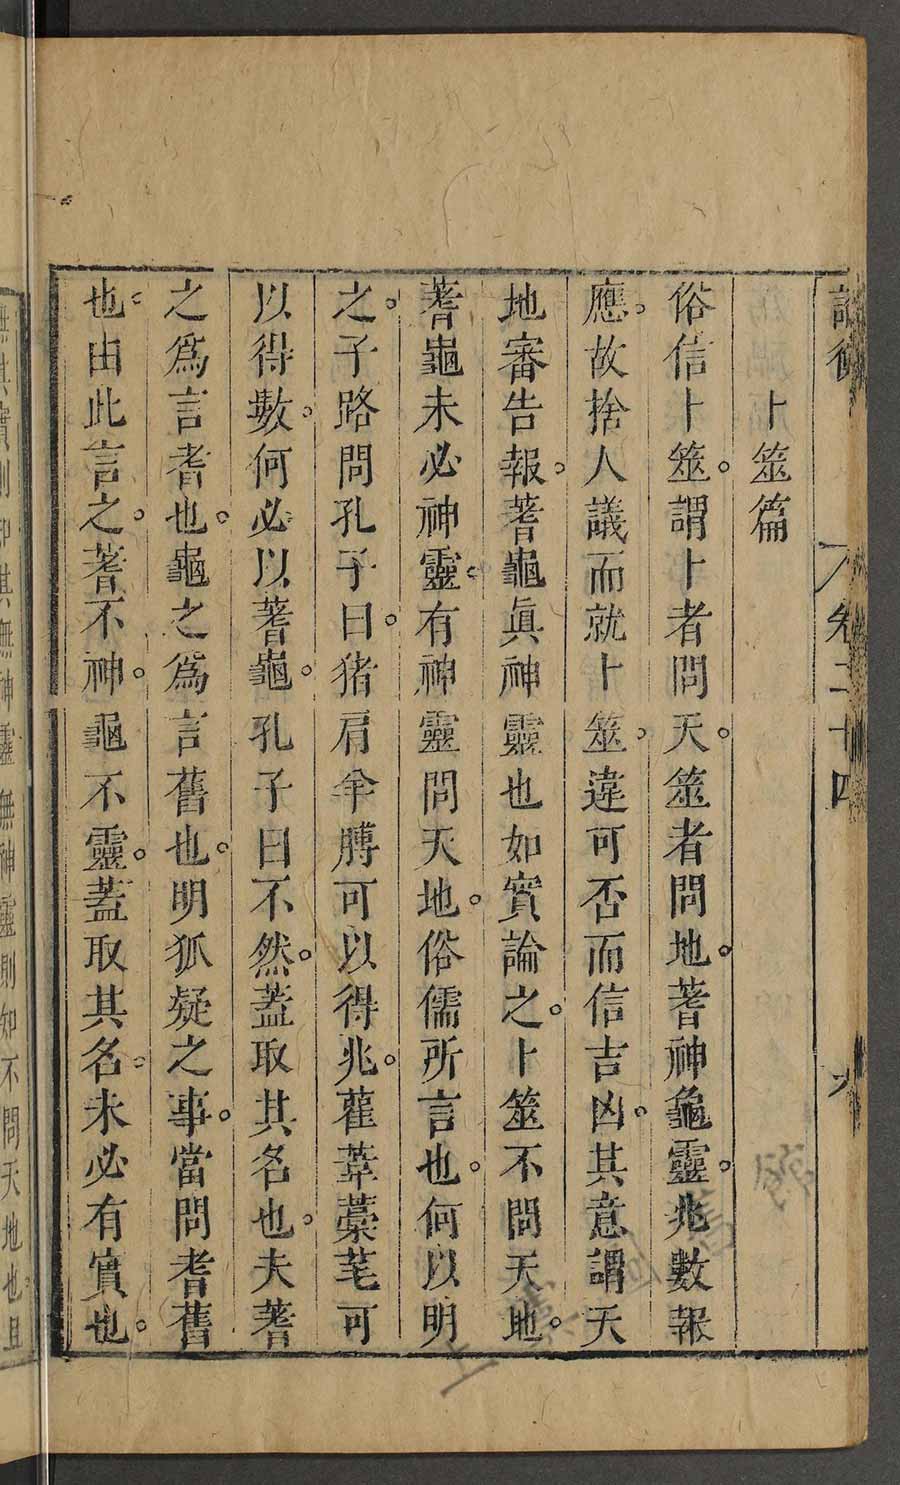 論衡 卷二十四 九
卜筮篇
俗信卜筮。謂卜者問天。筮者問地。蓍神龜靈。兆數報
應。故捨人議而就卜筮。違可否而信吉凶。其意謂天
地審告報。蓍龜眞神靈也如實論之。卜筮不問天地。
蓍龜未必神靈。有神靈問天地。俗儒所言也。何以明
之。子路問孔子曰。猪肩羊膊可以得兆。雚葦藁芼可
以得數。何必以蓍龜。孔子曰不然。蓋取其名也。夫蓍
之爲言耆也。龜之爲言舊也。明狐疑之事。當問耆舊
也。由此言之。蓍不神。龜不靈。蓋取其名。未必有實也。
無其實則知其無神靈無神靈則知不問天地也。且